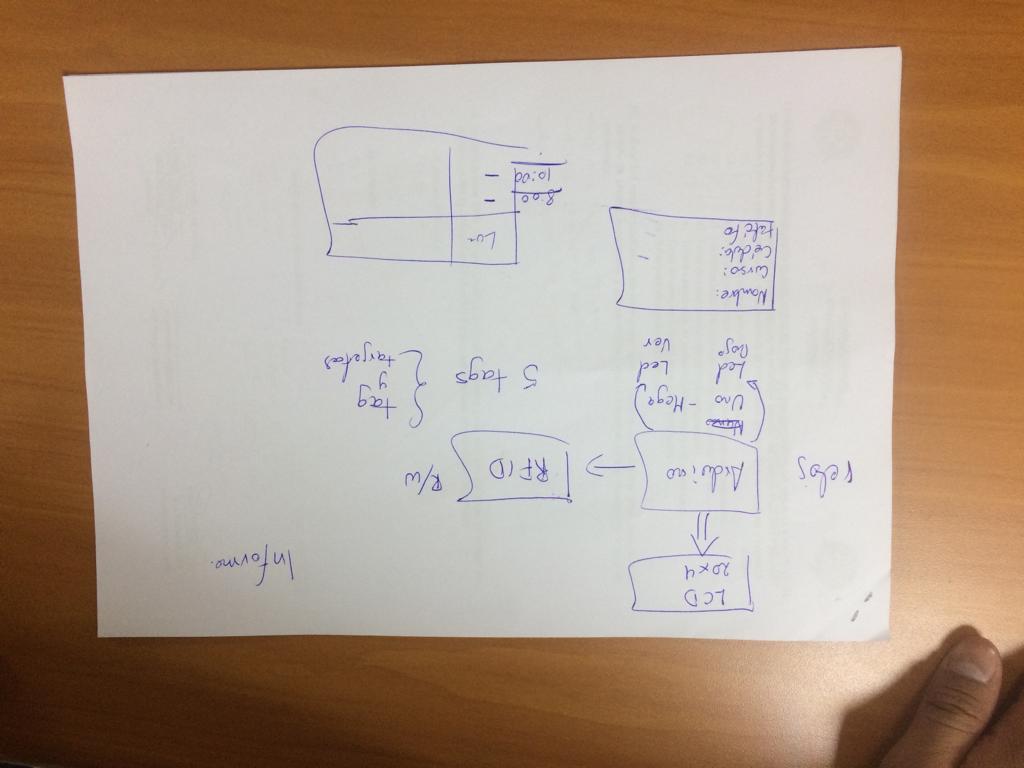 LCD
20x4
Informe.
reloj
Arduino
RFID
R/W
Uno - Mega
Led
Rojo
Led
Ver
5 tags
tag
y
tarjetas
Nombre:
Curso:
Cédula:
Lun
8:00
10:00